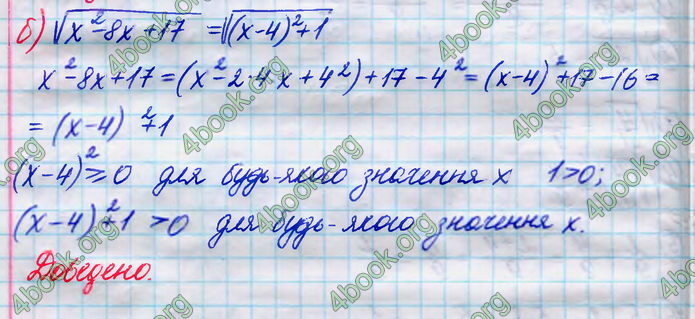 б) √x²-8x+17 = √(x-4)²+1
x²-8x+17=(x²-2·4x+4²)+17-4²=(x-4)²+17-16=
=(x-4)²+1
(x-4)²≥0 для будь-якого значення x 1>0;
(x-4)²+1>0 для будь-якого значення x.
Доведено.
4book.org
4book.org
4book.org
4book.org
4book.org
4book.org
4book.org
4book.org
4book.org
4book.org